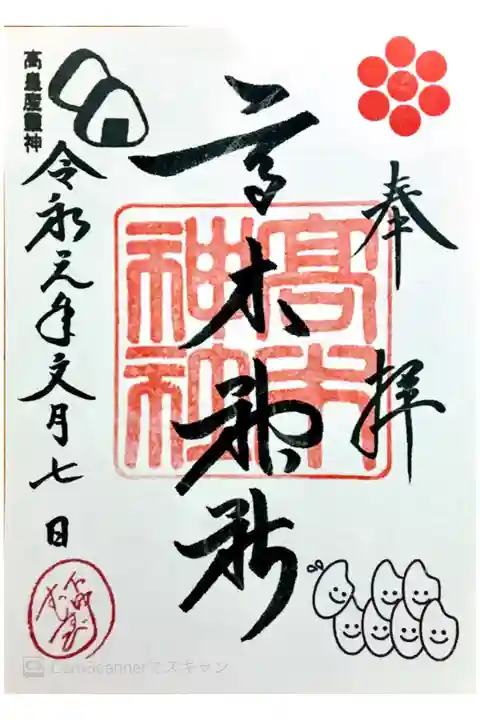 奉拝
高木神社
高木神社
高皇産靈神
令和元年文月七日
CamScannerでスキャン